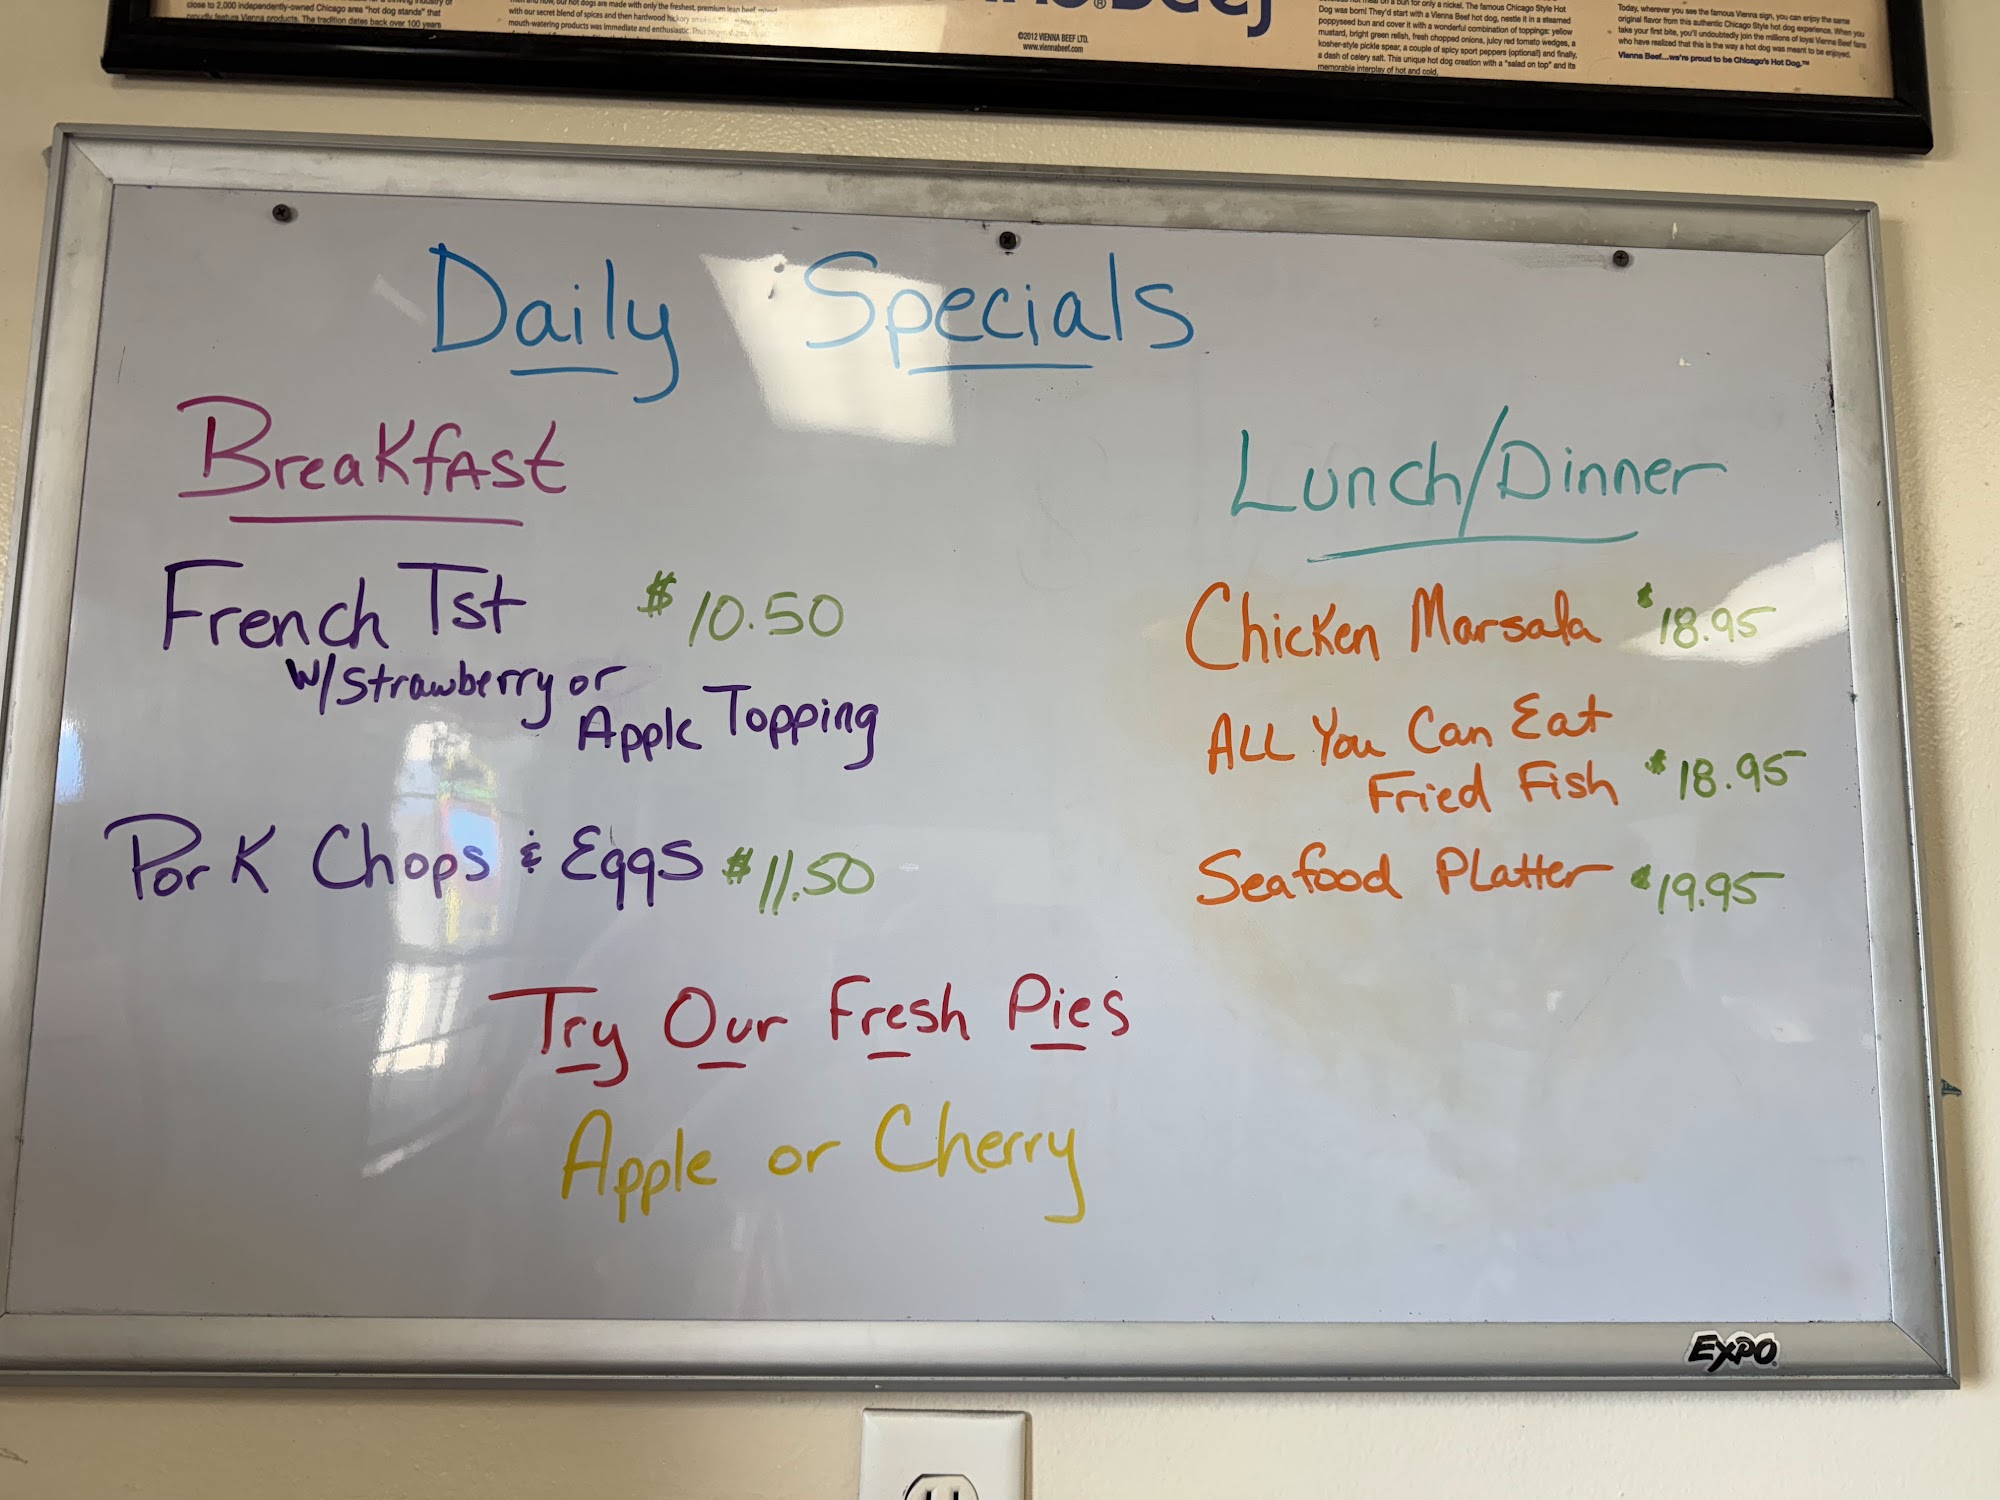 close to 2,000 independently-owned Chicago area "hot dog stands" that
proudly feature Vienna products. The tradition dates back over 100 years
with our secret blend of spices and then hardwood hickory
mouth-watering products was immediate and enthusiastic. Thus
®
©2012 VIENNA BEEF LTD.
www.viennabeef.com
on a bun for only a nickel. The famous Chicago Style Hot
Dog was born! They'd start with a Vienna Beef hot dog, nestle it in a steamed
poppyseed bun and cover it with a wonderful combination of toppings: yellow
mustard, bright green relish, fresh chopped onions, juicy red tomato wedges, a
kosher-style pickle spear, a couple of spicy sport peppers (optional) and finally,
a dash of celery salt. This unique hot dog creation with a "salad on top" and its
memorable interplay of hot and cold,
Today, wherever you see the famous Vienna sign, you can enjoy the same
original flavor from this authentic Chicago Style hot dog experience. When you
take your first bite, you'll undoubtedly join the millions of loyal Vienna Beef fans
who have realized that this is the way a hot dog was meant to be enjoyed.
Vienna Beef...we're proud to be Chicago's Hot Dog.™
Daily Specials
Breakfast
French Tst $10.50
w/strawberry or
Apple Topping
Pork Chops & Eggs $11.50
Lunch/Dinner
Chicken Marsala $18.95
ALL You Can Eat
Fried Fish $18.95
Seafood Platter $19.95
Try Our Fresh Pies
Apple or Cherry
EXPO